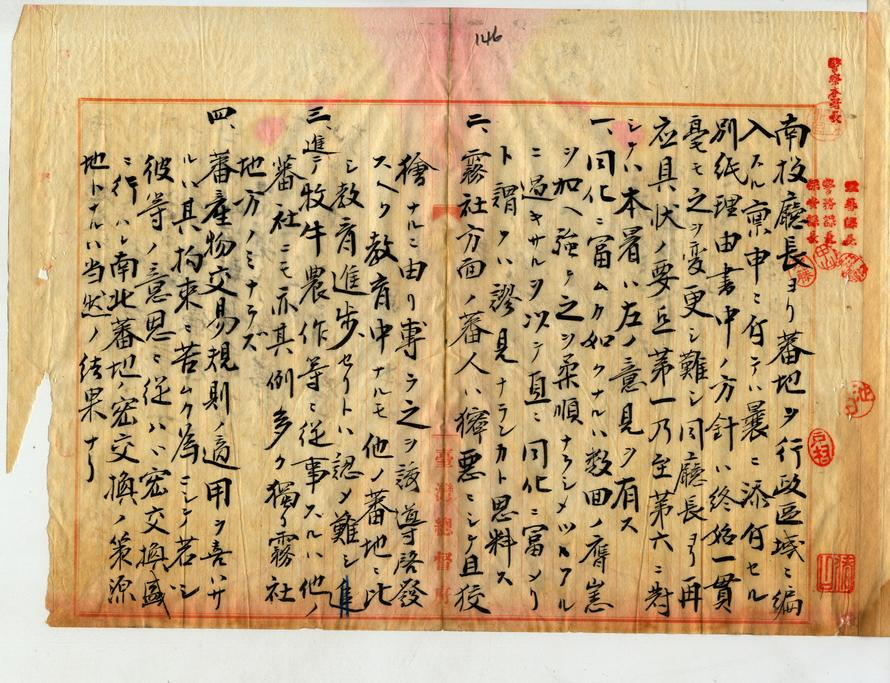 146
警察本署長
警務課長
保安課長
南投廳長ヨリ蕃地ヲ行政區域ニ編
入スル禀申ニ付テハ曩ニ添付セル
別紙理由書中ノ方針ハ終始一貫
毫モ之ヲ変更シ難シ同廳長ヨリ再
応具状ノ要丘第一乃至第六ニ對
シテハ本署ハ左ノ意見ヲ有ス
一、同化ニ富ムカ如クナルハ数回ノ膺懲
ヲ加ヘ強テ之ヲ柔順ナラシメツヽアル
ニ過キサルヲ以テ直ニ同化ニ富メリ
ト謂フハ謬見ナランカト思料ス
二、霧社方面ノ蕃人ハ獰悪ニシテ且狡
獪ナルニ由リ専ラ之ヲ誘導啓發
スヘク教育中ナルモ他ノ蕃地ニ比
シ教育進歩セリトハ認メ難シ
三、進テ牧牛農作等ニ從事スルハ他ノ
蕃社ニモ亦其例多ク獨リ霧社
地方ノミナラズ
四、蕃產物交易規則ノ適用ヲ喜ハサ
ルハ其拘束ニ苦ムカ為ニシテ若シ
彼等ノ意思ニ從ハハ密交換盛
ニ行ハレ南北蕃地ノ密交換ノ策源
地トナルハ当然ノ結果ナリ
臺灣總督府